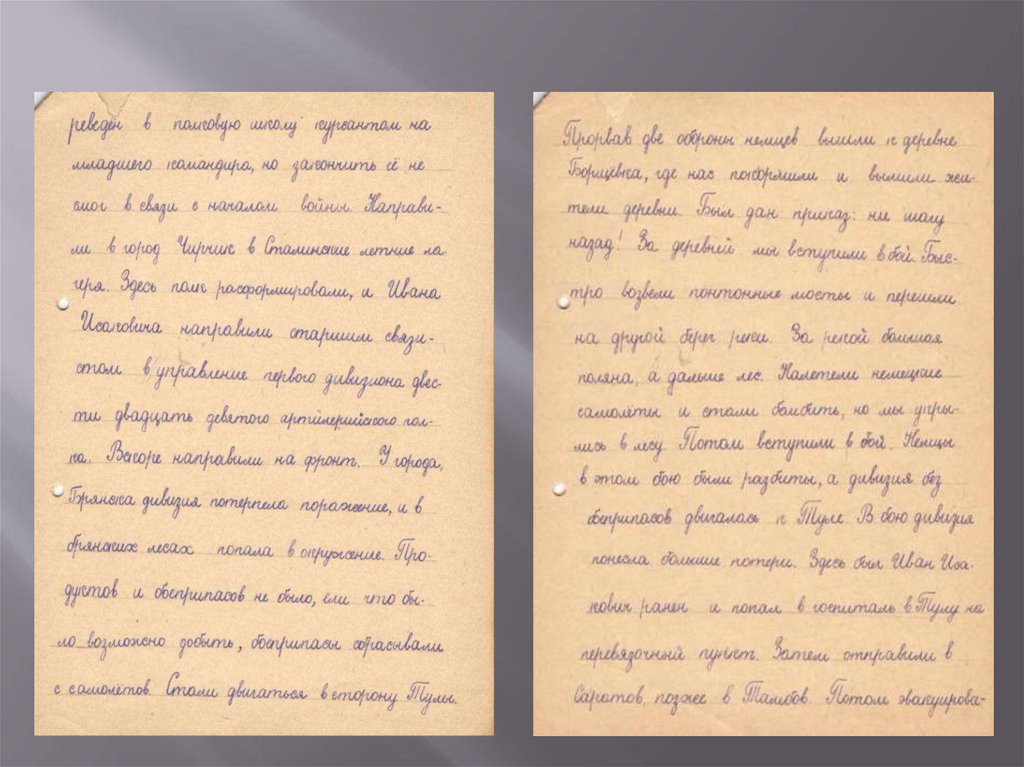 реведен в полковую школу курсантом на
младшего командира, но закончить её не
смог в связи с началом войны. Направи-
ли в город Чирчик в Сталинские летние ла-
геря. Здесь полк расформировали, и Ивана
Исаковича направили старшим связи-
стом в управление первого дивизиона двес-
ти двадцать девятого артилерийского пол-
ка. Вскоре направили на фронт. У города,
Брянска дивизия потерпела поражение, и в
брянских лесах попала в окружение. Про-
дуктов и боеприпасов не было, ели что бы-
ло возможно добыть, боеприпасы сбрасывали
с самолётов. Стали двигаться в сторону Тулы.
Прорвав две обороны немцев вышли к деревне
Борщёвка, где нас покормили и вымыли жи-
тели деревни. Был дан приказ: ни шагу
назад! За деревней мы вступили в бой. Быс-
тро возвели понтонные мосты и перешли
на другой берег реки. За рекой большая
поляна, а дальше лес. Налетели немецкие
самолёты и стали бомбить, но мы укры-
лись в лесу. Потом вступили в бой. Немцы
в этом бою были разбиты, а дивизия без
боеприпасов двигалась к Туле. В бою дивизия
понесла большие потери. Здесь был Иван Иса-
кович ранен и попал в госпиталь в Тулу на
перевязочный пункт. Затем отправили в
Саратов, позже в Тамбов. Потом эвакуирова-